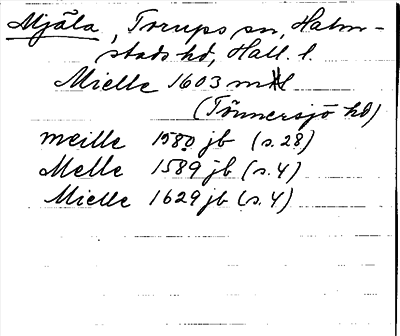 Mjäla, Torups sn, Halm-
stads hd, Hall. l.
Mielle 1603 mtl
(Tönnersjö hd)
meille 1580 jb (s. 28)
Melle 1589 jb (s. 4)
Mielle 1629 jb (s. 4)